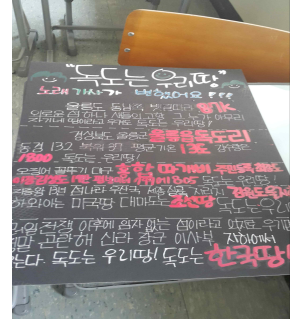 "독도는 우리땅"
노래 가사가 바뀌었어요!!!
울릉도 동남쪽 뱃길따라 87K
외로운 섬 하나 새들의 고향 그 누가 아무리
자기네 땅이라고 우겨도 독도는 우리땅!
경상북도 울릉군 울릉읍 독도리
동경 132 북위 37 평균기온 13도 강수량은
1800 독도는 우리땅!
오징어 꼴뚜기 대구 홍합 따개비
독도는 우리땅
하와이는 미국땅 대마도는 조선땅 독도는 우리땅
러일전쟁 직후에 임자 없는 섬이라고 억지로 우기면
신라 장군 이사부 지하에서
웃는다. 독도는 우리땅! 독도는 한국땅